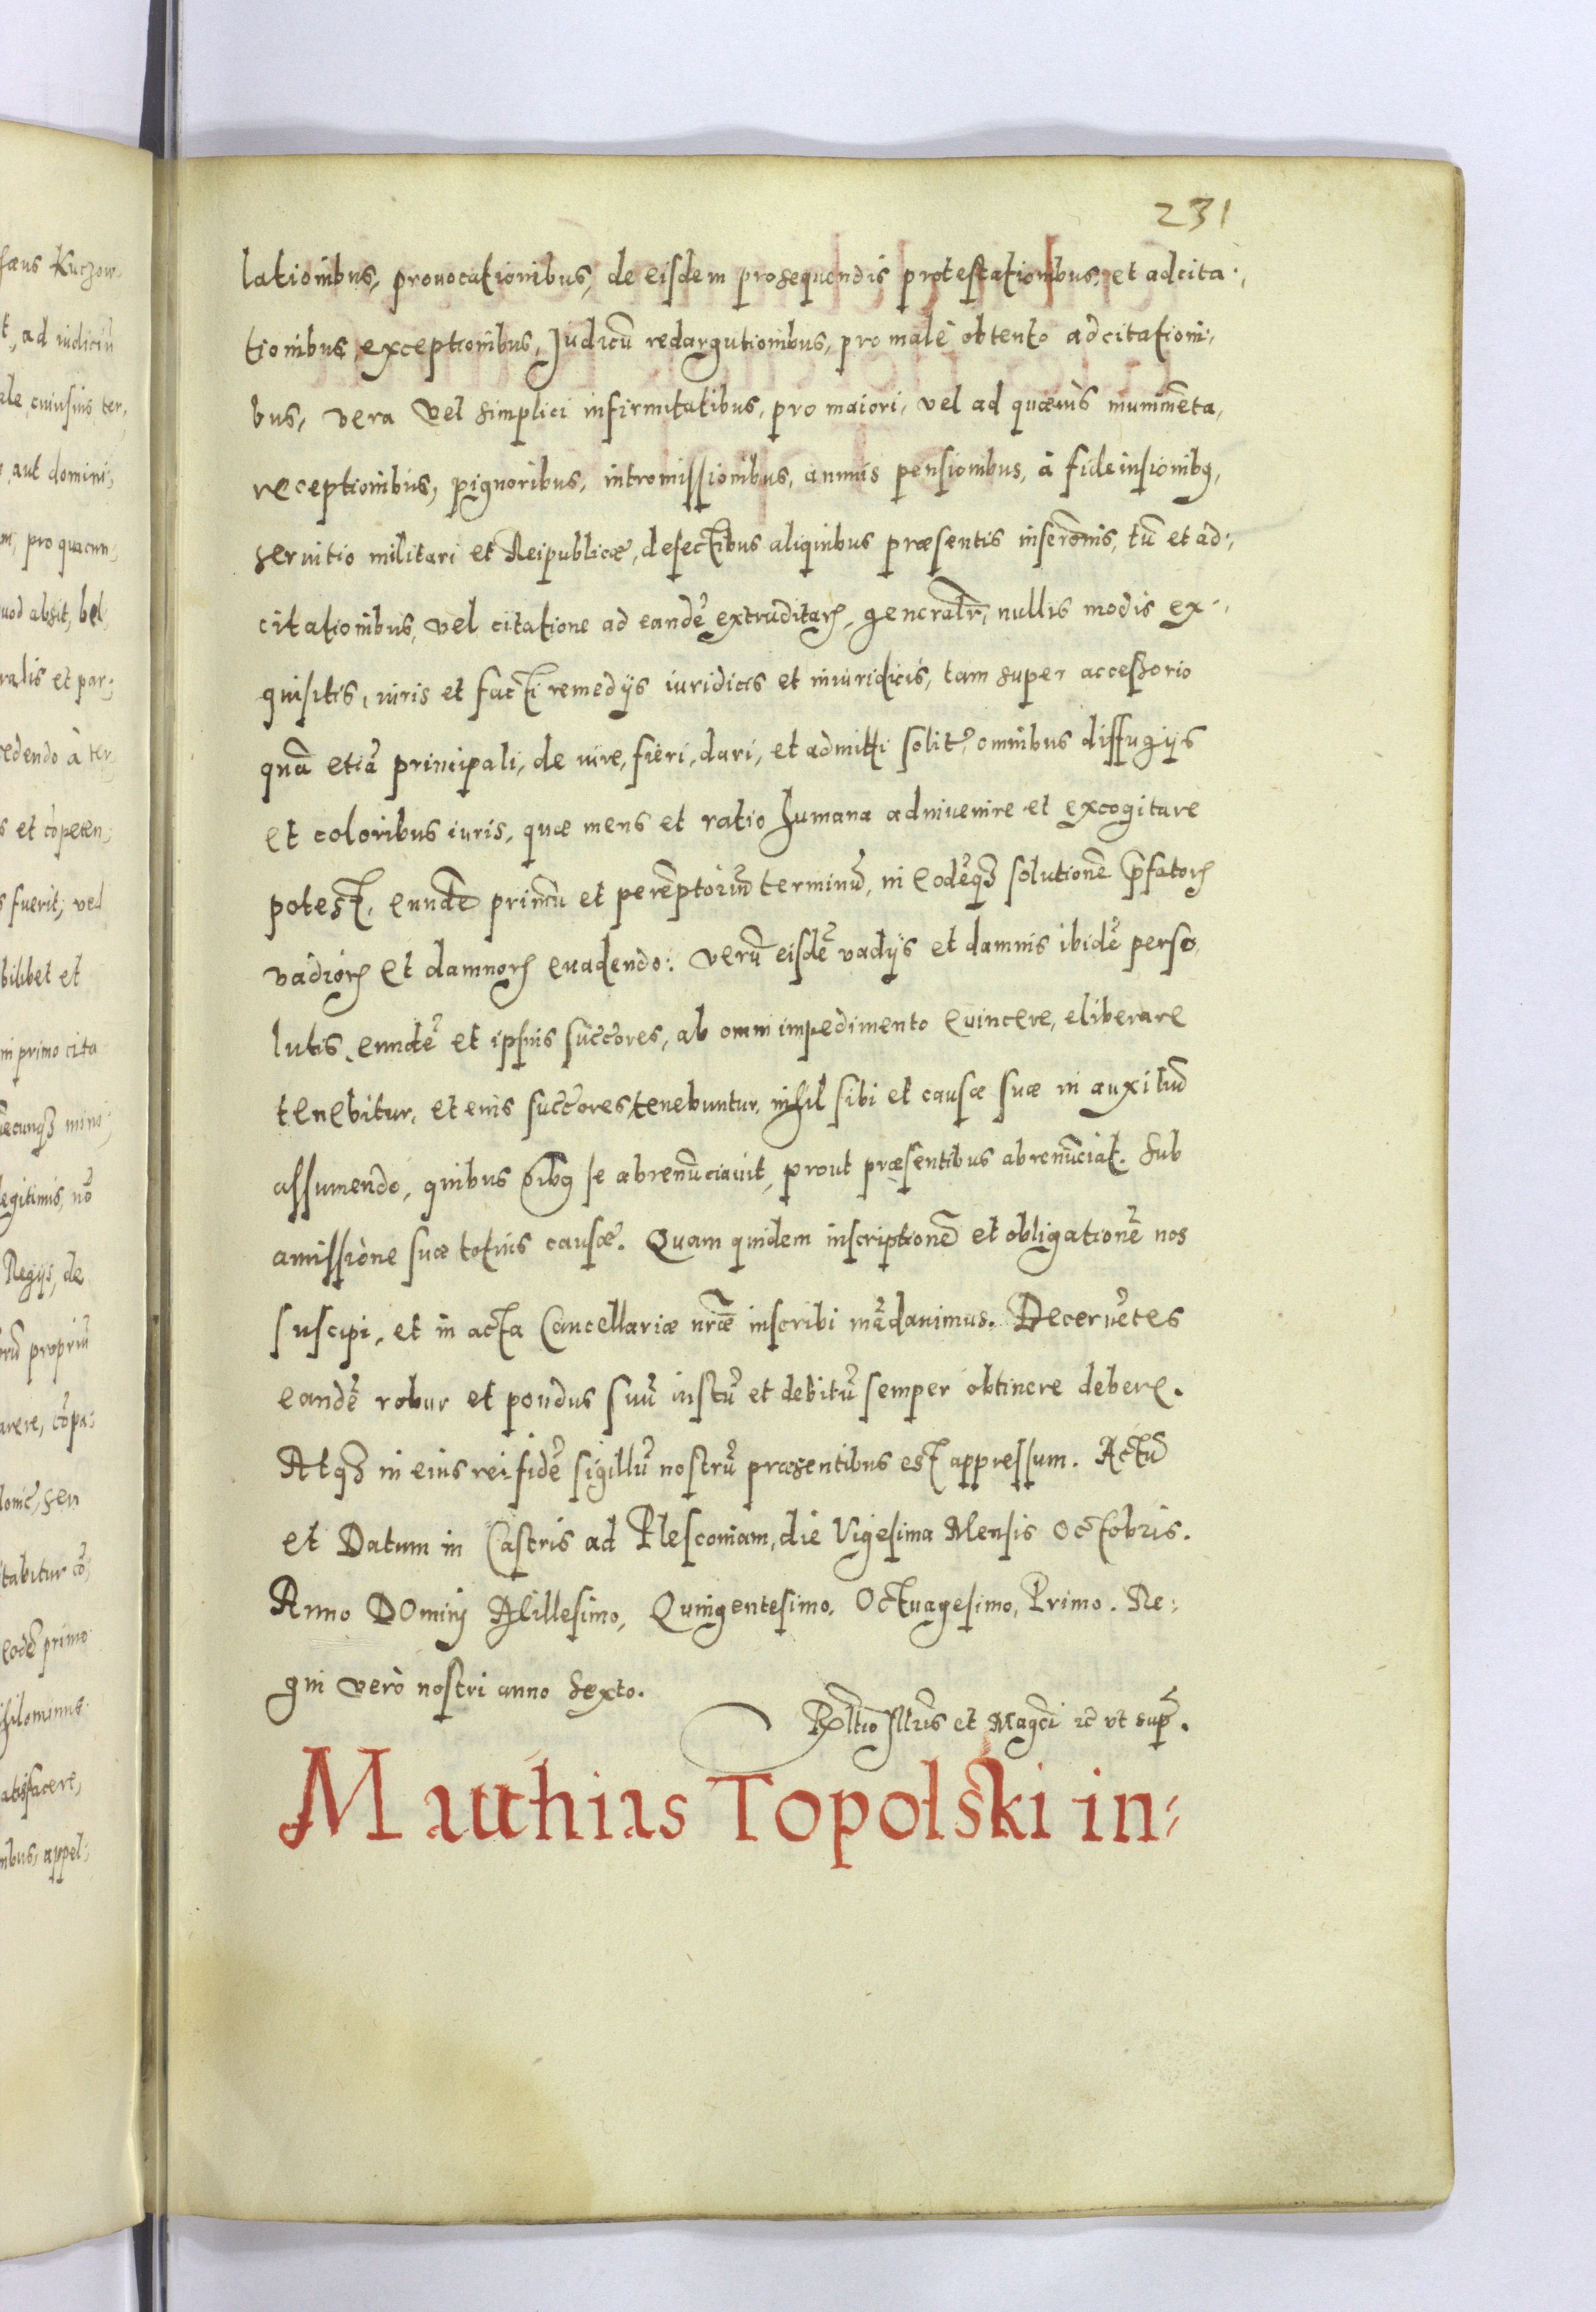 231
lationibus, prouocationibus, de eisdem prosequendis protestationibus, et adcita:
tionibus, exceptionibus, Judicũ redargutionibus, pro malè obtento adcitationi,
bus, vera vel simplici infirmitatibus, pro maiori, vel ad munimẽta,
receptionibus, pignoribus, intromissionibus, annuis pensionibus, à fideiussionibq,
seruitio militari et Reipublicæ, defectibus aliquibus præsentis inserõnis, tũ et ad:
citationibus, vel citatione ad eandẽ extraditaꝝ, generalr̃, nullis modis ex:
quisitis, iuris et facti remedijs iuridicis et iniuridicis, tam super accessorio
quã etiã principali, de iure, fieri, dari, et admitti solit̃, omnibus diffugijs
et coloribus iuris, quæ mens et ratio humana adinuenire et excogitare
potest, eundẽ primũ et perẽptoriũ terminũ, in eodẽqꝫ solutionẽ p̃fatoꝝ
vadioꝝ et damnoꝝ euadendo: verũ eisdẽ vadijs et damnis ibidẽ perso,
lutis, eundẽ et ipsius succ̃ores, ab omni impedimento euincere, eliberare
tenebitur, et eius succ̃ores tenebuntur, nihil sibi et causæ suæ in auxiliũ
assumendo, quibus õibq se abrenũciauit, prout præsentibus abrenũciat. sub
amissione suæ totius causæ. Quam quidem inscriptionẽ et obligationẽ nos
suscipi, et in acta Cancellariæ nr̃æ inscribi mãdauimus. Decernẽtes
eandẽ robur et pondus suũ iustũ et debitũ semper obtinere debere.
Atqꝫ in eius rei fidẽ sigillũ nostrũ præsentibus est appressum. Actũ
et Datum in Castris ad Plescouiam, die Vigesima Mensis Octobris.
Anno Dominj Millesimo, Quingentesimo, Octuagesimo, Primo. Re:
gni verò nostri anno sexto.
Rl̃tio Jllr̃is et Magc̃i ꝛc̃ vt sup̃.
Matthias Topolski in: